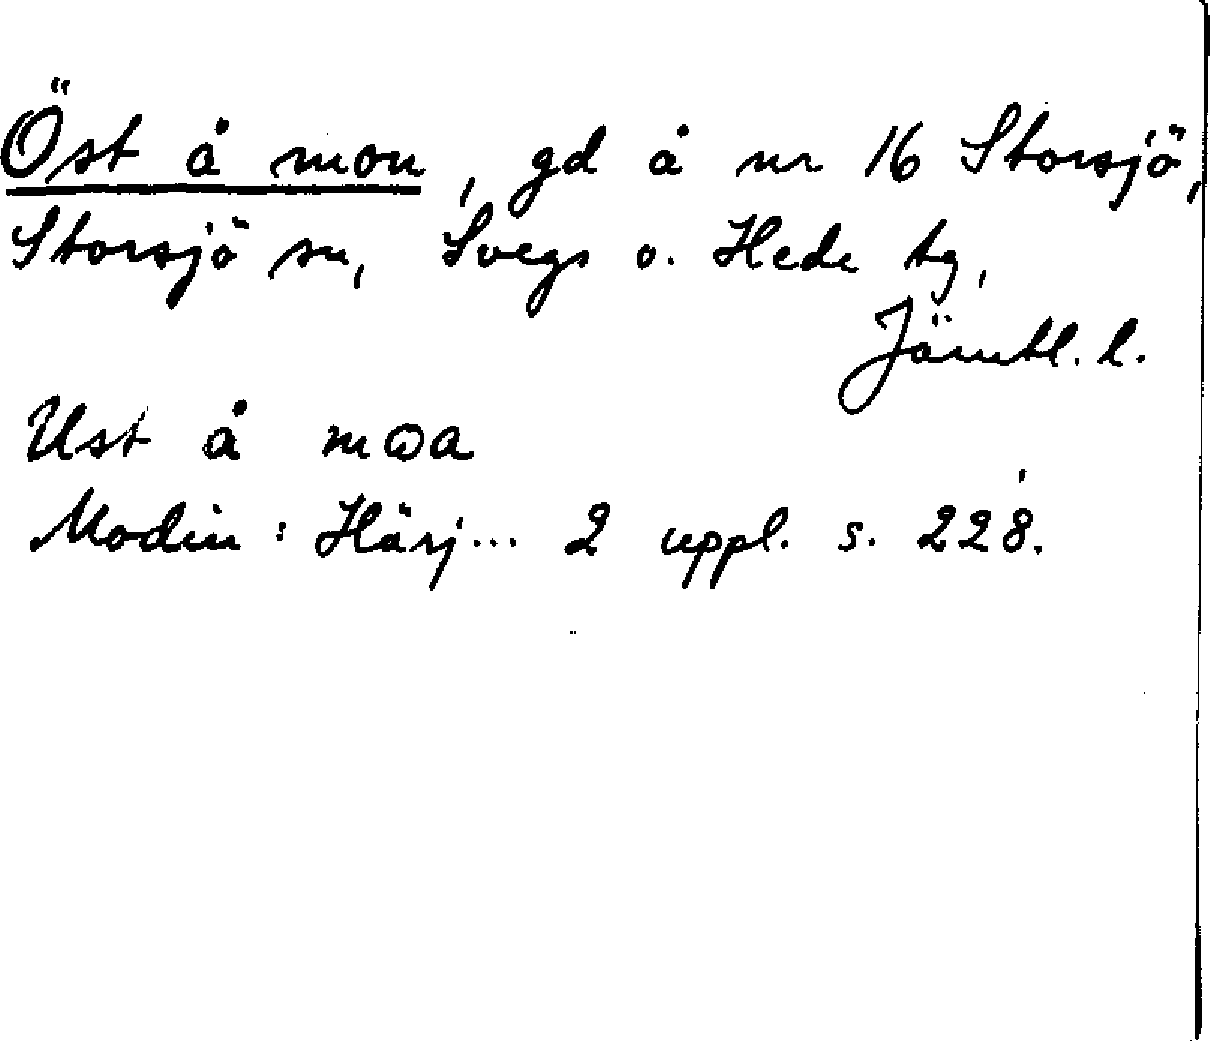 Öst å mon, gd å nr 16 Storsjö,
Storsjö sn, Svegs o. Hede tg,
Jämtl. l.
Ust å moa
Modin: Härj... 2 uppl. s. 228.